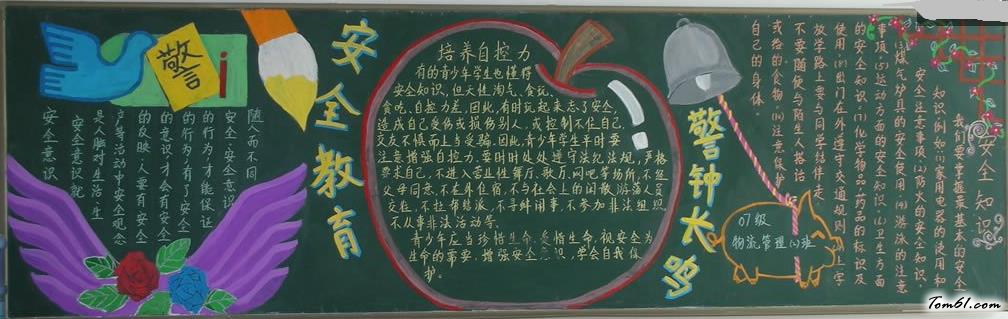 警
安全教育
安全意识
安全意识就
是人脑对生活、生
产等活动中安全观念
的反映,人要有安全
的意识才会有安全
的行为;有了安全
的行为,才能保证
安全。安全意识
随人而不同
培养自控力
有的青少年学生也懂得
安全知识,但天性淘气、贪玩、
贪吃、自控力差,因此,有时玩起来忘了安全,
造成自己受伤或损伤别人,或控制不住自己,
交友不慎而上当受骗。因此,青少年学生平时要
注意增强自控力,要时时处处遵守法纪法规,严格
要求自己,不进入营业性舞厅、歌厅、网吧等场所,不经
父母同意,不在外住宿,不与社会上的闲散、游荡人员
交往,不拉帮结派,不寻衅闹事,不参加非法组织,
不从事非法活动等。
青少年应当珍惜生命,爱惜生命,视安全为
生命的需要,增强安全意识,学会自我保
护。
警钟长鸣
07级
物流管理(1)班
安全知识
我们要掌握最基本的安全
知识例如:(1)家用电器的使用和
安全注意事项,(2)防火的安全知识,
煤气炉具的安全使用,(4)游泳的注意
事项,(5)运动方面的安全知识,(6)卫生方面
的安全知识,(7)化学物品、药品的标识及
使用,(8)出门在外遵守交通规则,上学
放学路上要与同学结伴走
不要随便与陌生人搭话
或给的食物,(10)注意保护
自己的身体。
Tom61.com